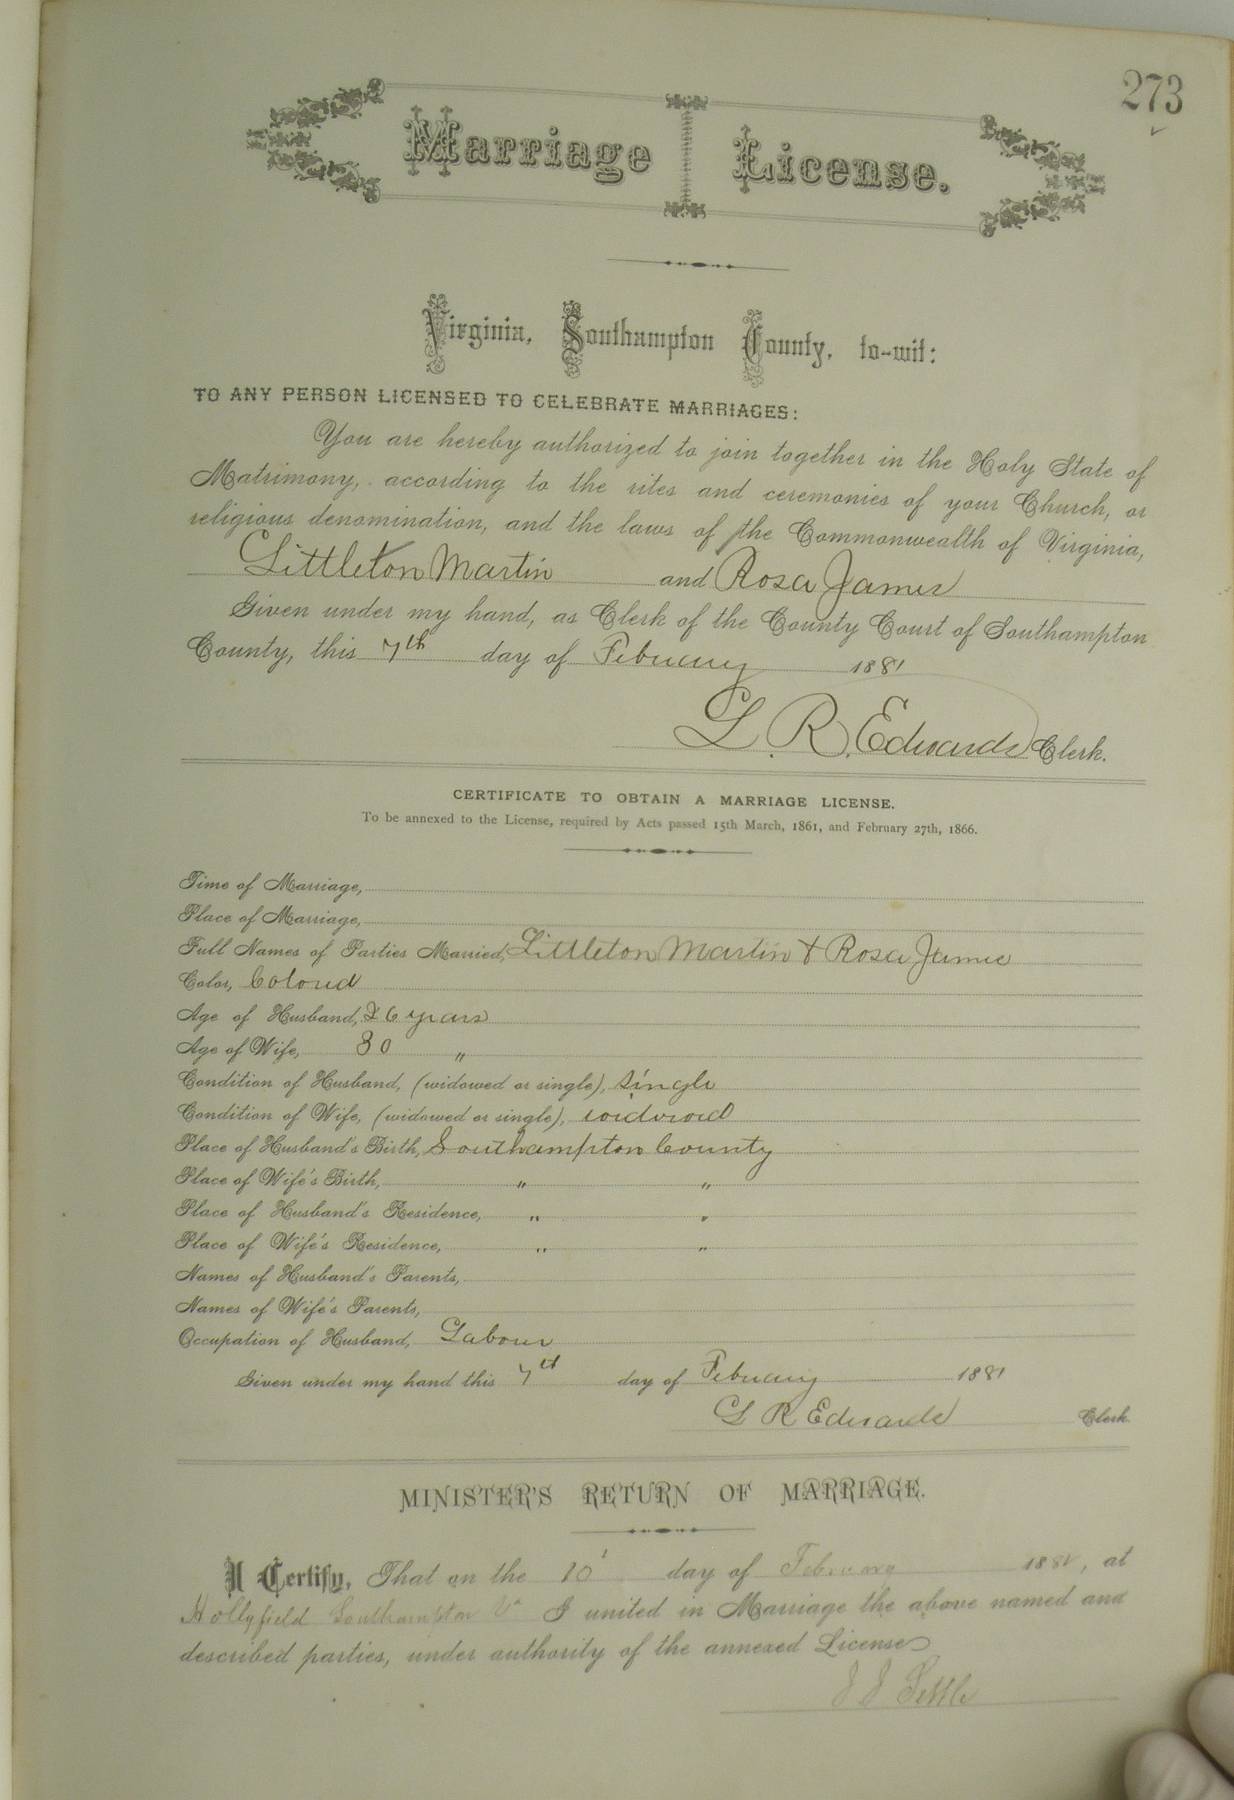 273
Marriage License.
Virginia, Southampton County, to-wit:
TO ANY PERSON LICENSED TO CELEBRATE MARRIAGES:
You are hereby authorized to join together in the Holy State of
Matrimony, according to the rites and ceremonies of your Church, or
religious denomination, and the laws of the Commonwealth of Virginia,
Littleton Martin and Rosa James
Given under my hand, as Clerk of the County Court of Southampton
County, this 7th day of February 1881
L. R. Edwards Clerk.
CERTIFICATE TO OBTAIN A MARRIAGE LICENSE.
To be annexed to the License, required by Acts passed 15th March, 1861, and February 27th, 1866.
Time of Marriage,
Place of Marriage,
Full Names of Parties Married, Littleton Martin & Rosa James
Color, Colored
Age of Husband, 26 years
Age of Wife, 30 "
Condition of Husband, (widowed or single), single
Condition of Wife, (widowed or single), widowed
Place of Husband's Birth, Southampton County
Place of Wife's Birth, " "
Place of Husband's Residence, " "
Place of Wife's Residence, " "
Names of Husband's Parents,
Names of Wife's Parents,
Occupation of Husband, Labour
Given under my hand this 7th day of February 1881
L R Edwards Clerk.
MINISTER'S RETURN OF MARRIAGE.
I Certify, That on the 10 day of February 188, at
Hollyfield Southampton Va I united in Marriage the above named and
described parties, under authority of the annexed License
J J